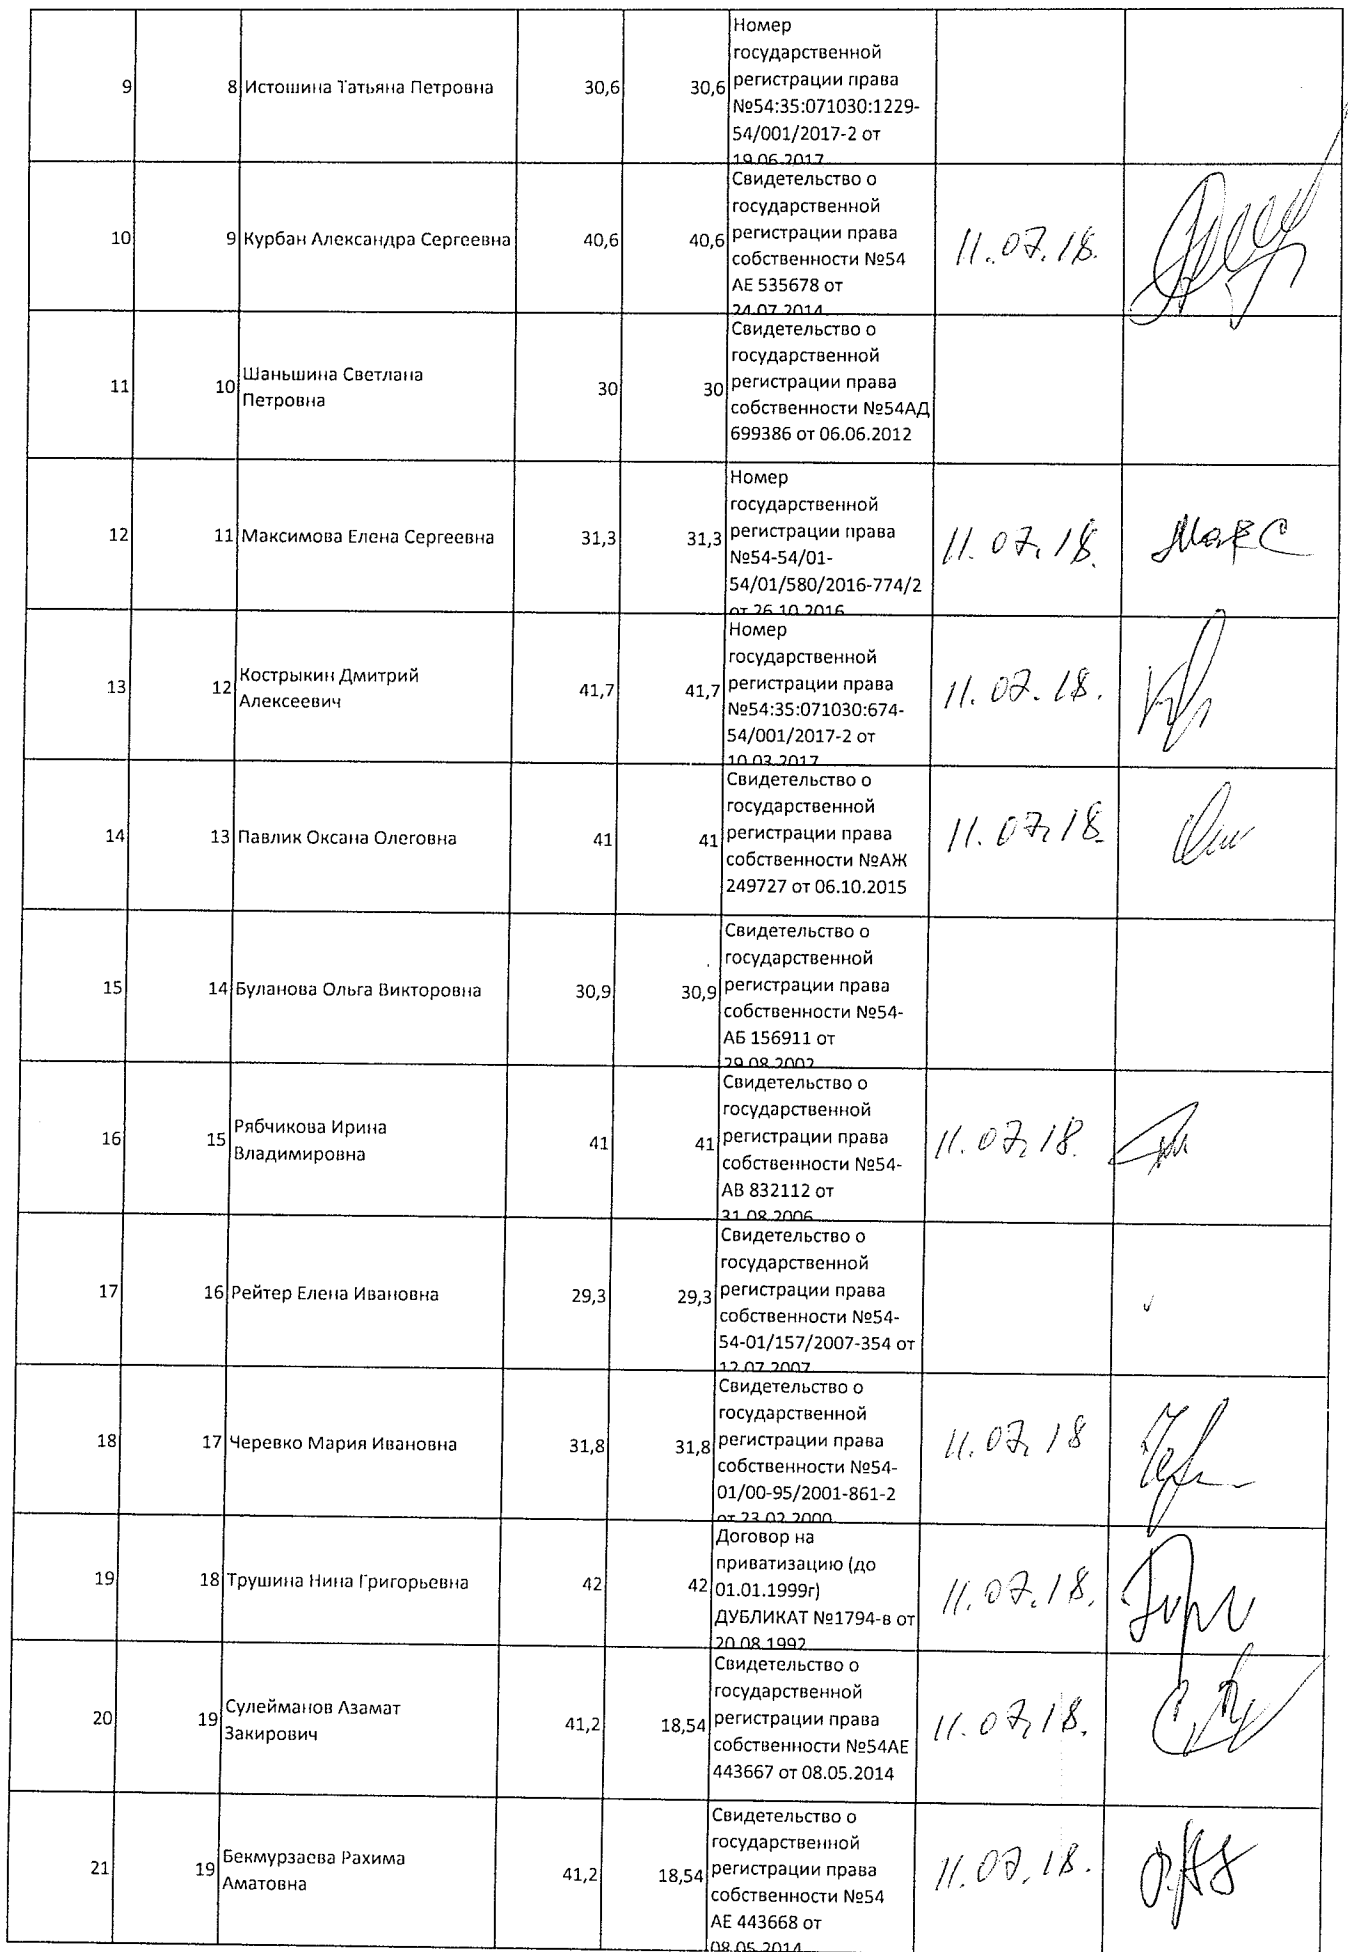 9 8 Истошина Татьяна Петровна 30,6 30,6 Номер
государственной
регистрации права
№54:35:071030:1229-
54/001/2017-2 от
19.06.2017
10 9 Курбан Александра Сергеевна 40,6 40,6 Свидетельство о
государственной
регистрации права
собственности №54
АЕ 535678 от
24.07.2014
11.07.18.
11 10 Шаньшина Светлана
Петровна
30 30 Свидетельство о
государственной
регистрации права
собственности №54АД
699386 от 06.06.2012
12 11 Максимова Елена Сергеевна 31,3 31,3 Номер
государственной
регистрации права
№54-54/01-
54/01/580/2016-774/2
от 26.10.2016
11.07.18. МакС
13 12 Кострыкин Дмитрий
Алексеевич
41,7 41,7 Номер
государственной
регистрации права
№54:35:071030:674-
54/001/2017-2 от
10.03.2017
11.07.18.
14 13 Павлик Оксана Олеговна 41 41 Свидетельство о
государственной
регистрации права
собственности №АЖ
249727 от 06.10.2015
11.07.18.
15 14 Буланова Ольга Викторовна 30,9 30,9 Свидетельство о
государственной
регистрации права
собственности №54-
АБ 156911 от
29.08.2002
16 15 Рябчикова Ирина
Владимировна
41 41 Свидетельство о
государственной
регистрации права
собственности №54-
АВ 832112 от
31.08.2006
11.07.18.
17 16 Рейтер Елена Ивановна 29,3 29,3 Свидетельство о
государственной
регистрации права
собственности №54-
54-01/157/2007-354 от
12.07.2007
18 17 Черевко Мария Ивановна 31,8 31,8 Свидетельство о
государственной
регистрации права
собственности №54-
01/00-95/2001-861-2
от 23.02.2000
11.07.18
19 18 Трушина Нина Григорьевна 42 42 Договор на
приватизацию (до
01.01.1999г)
ДУБЛИКАТ №1794-в от
20.08.1992
11.07.18.
20 19 Сулейманов Азамат
Закирович
41,2 18,54 Свидетельство о
государственной
регистрации права
собственности №54АЕ
443667 от 08.05.2014
11.07.18.
21 19 Бекмурзаева Рахима
Аматовна
41,2 18,54 Свидетельство о
государственной
регистрации права
собственности №54
АЕ 443668 от
08.05.2014
11.07.18.